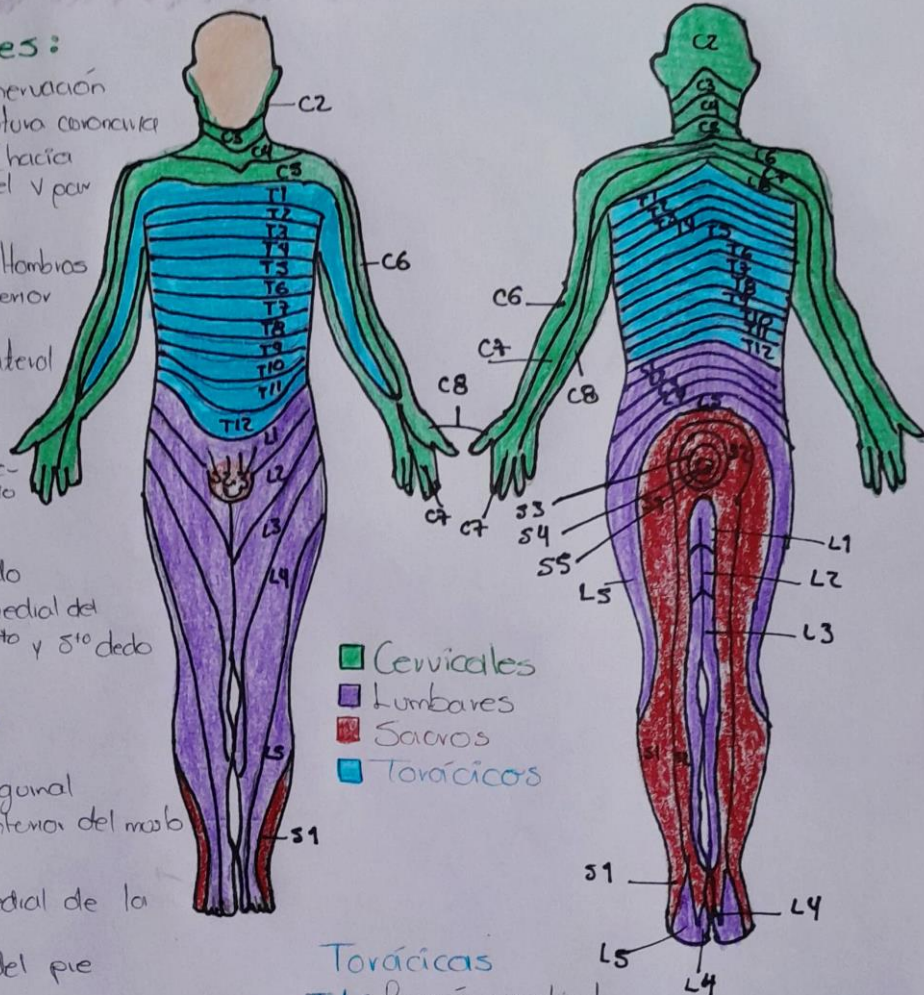 es:
nervación
tura coronaria
hacia
el V par
Hombros
erior
ateral
do
edial del
to y 5to dedo
guinal
terior del muslo
dial de la
del pie
C2
C3
C4
C5
T1
T2
T3
T4
T5
T6
T7
T8
T9
T10
T11
T12
L1
L2
L3
L4
L5
S1
C6
C8
C7
C2
C3
C4
C5
C6
C7
C8
T1
T2
T3
T4
T5
T6
T7
T8
T9
T10
T11
T12
L5
S2
C6
C7
C8
C7
S3
S4
S5
L5
L1
L2
L3
S1
S2
S1
L5
L4
L4
Cervicales
Lumbares
Sacros
Torácicos
Torácicas